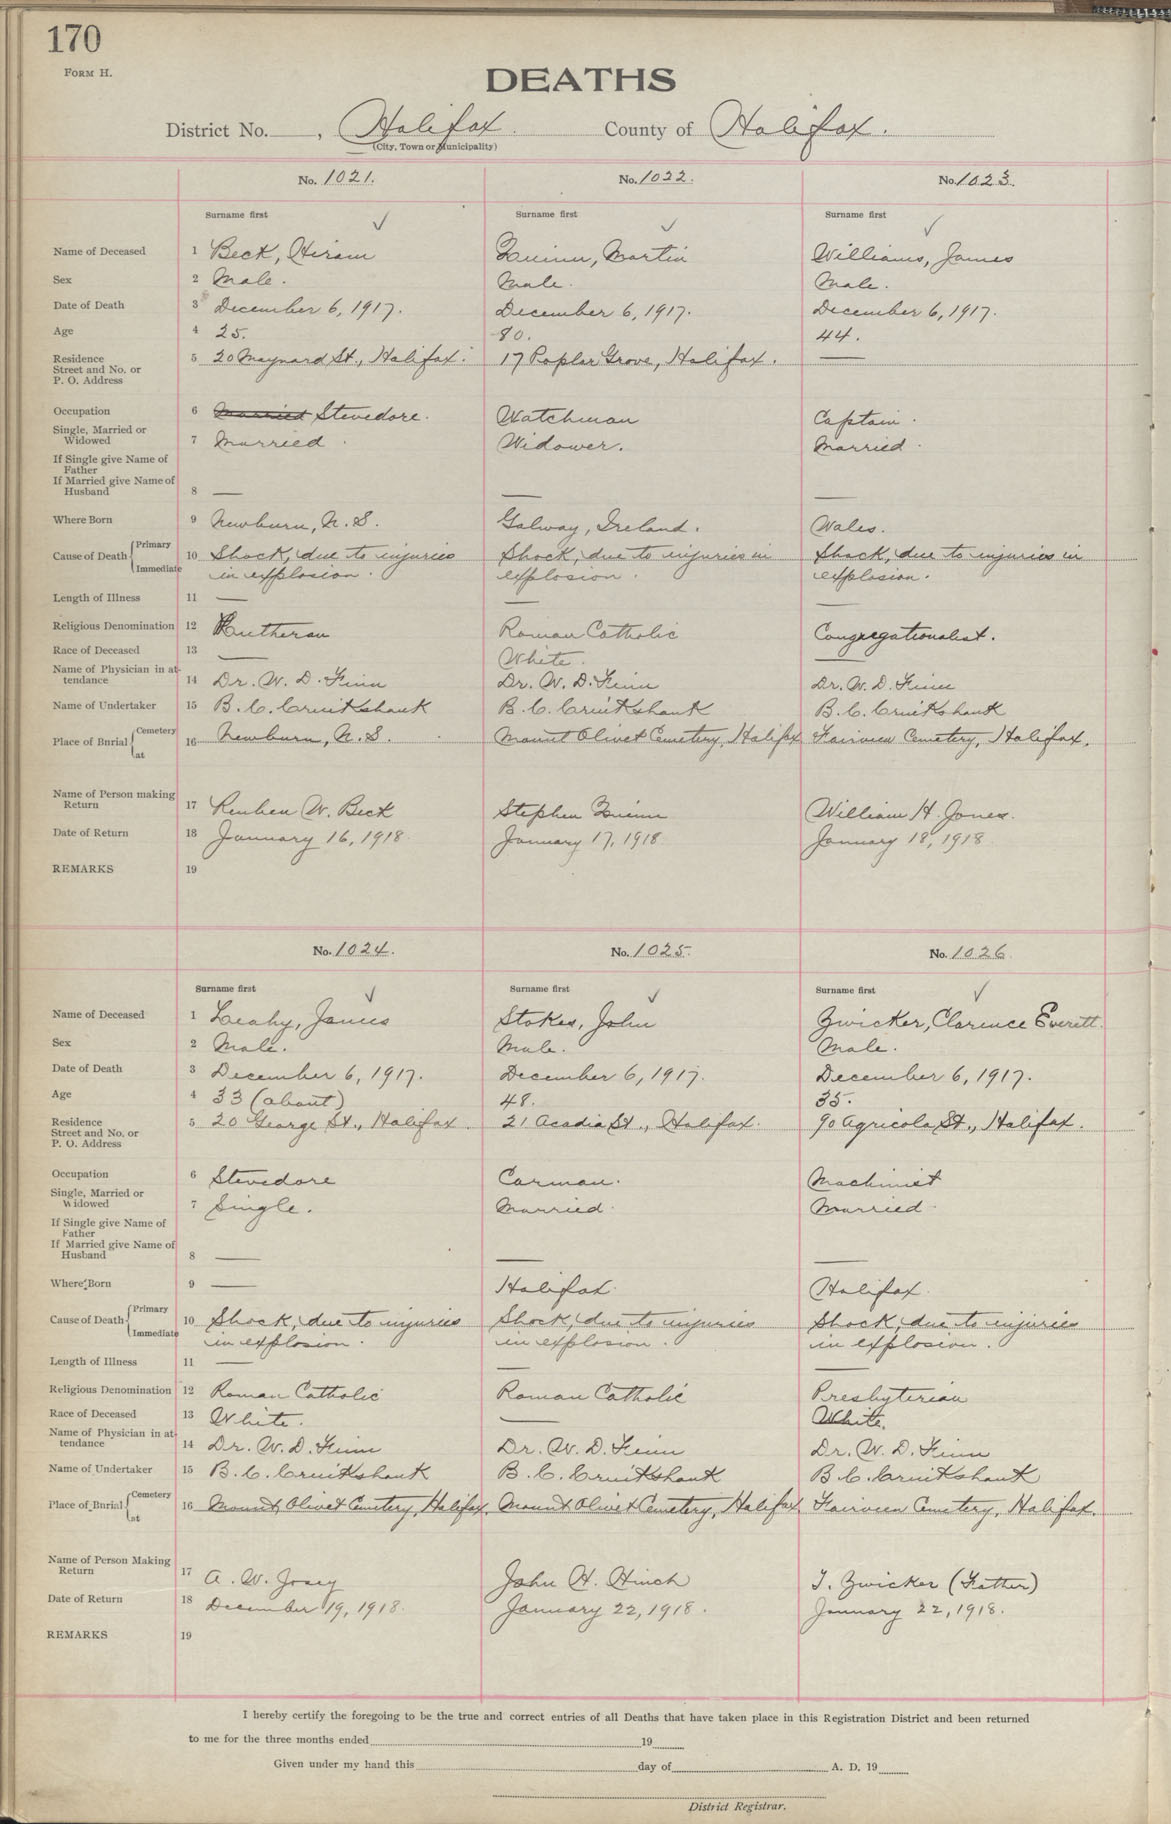 170
FORM H.
DEATHS
District No. , Halifax. County of Halifax.
(City, Town or Municipality)
No. 1021. No. 1022. No. 1023.
Surname first Surname first Surname first
Name of Deceased 1 Beck, Hiram Quinn, Martin Williams, James
Sex 2 Male. Male. Male.
Date of Death 3 December 6, 1917. December 6, 1917. December 6, 1917.
Age 4 25. 80. 44.
Residence Street and No. or P. O. Address 5 20 Maynard St., Halifax. 17 Poplar Grove, Halifax. —
Occupation 6 Married Stevedore. Watchman Captain.
Single, Married or Widowed 7 Married. Widower. Married.
If Single give Name of Father
If Married give Name of Husband 8 — — —
Where Born 9 Newburn, N. S. Galway, Ireland. Wales.
Cause of Death { Primary Immediate 10 Shock, due to injuries Shock, due to injuries in Shock, due to injuries in
in explosion. explosion. explosion.
Length of Illness 11 — — —
Religious Denomination 12 Lutheran Roman Catholic Congregationalist.
Race of Deceased 13 — White. —
Name of Physician in attendance 14 Dr. W. D. Finn Dr. W. D. Finn Dr. W. D. Finn
Name of Undertaker 15 B. C. Cruikshank B. C. Cruikshank B. C. Cruikshank
Place of Burial { Cemetery at 16 Newburn, N. S. Mount Olivet Cemetery, Halifax Fairview Cemetery, Halifax.
Name of Person making Return 17 Reuben W. Beck Stephen Quinn William H. Jones.
Date of Return 18 January 16, 1918 January 17, 1918 January 18, 1918
REMARKS 19
No. 1024. No. 1025. No. 1026
Surname first Surname first Surname first
Name of Deceased 1 Leahy, James Stokes, John Zwicker, Clarence Everett.
Sex 2 Male. Male. Male.
Date of Death 3 December 6, 1917. December 6, 1917. December 6, 1917.
Age 4 33 (about) 48. 35.
Residence Street and No. or P. O. Address 5 20 George St., Halifax. 21 Acadia St., Halifax. 90 Agricola St., Halifax.
Occupation 6 Stevedore Carman. Machinist
Single, Married or Widowed 7 Single. Married. Married.
If Single give Name of Father
If Married give Name of Husband 8 — — —
Where Born 9 — Halifax. Halifax.
Cause of Death { Primary Immediate 10 Shock, due to injuries Shock, due to injuries Shock, due to injuries
in explosion. in explosion. in explosion.
Length of Illness 11 — — —
Religious Denomination 12 Roman Catholic Roman Catholic Presbyterian
Race of Deceased 13 White. — White.
Name of Physician in attendance 14 Dr. W. D. Finn Dr. W. D. Finn Dr. W. D. Finn
Name of Undertaker 15 B. C. Cruikshank B. C. Cruikshank B. C. Cruikshank
Place of Burial { Cemetery at 16 Mount Olivet Cemetery, Halifax. Mount Olivet Cemetery, Halifax Fairview Cemetery, Halifax.
Name of Person Making Return 17 A. W. Josey John H. Hinch T. Zwicker (Father)
Date of Return 18 December 19, 1918. January 22, 1918. January 22, 1918.
REMARKS 19
I hereby certify the foregoing to be the true and correct entries of all Deaths that have taken place in this Registration District and been returned
to me for the three months ended 19
Given under my hand this day of A. D. 19
District Registrar.